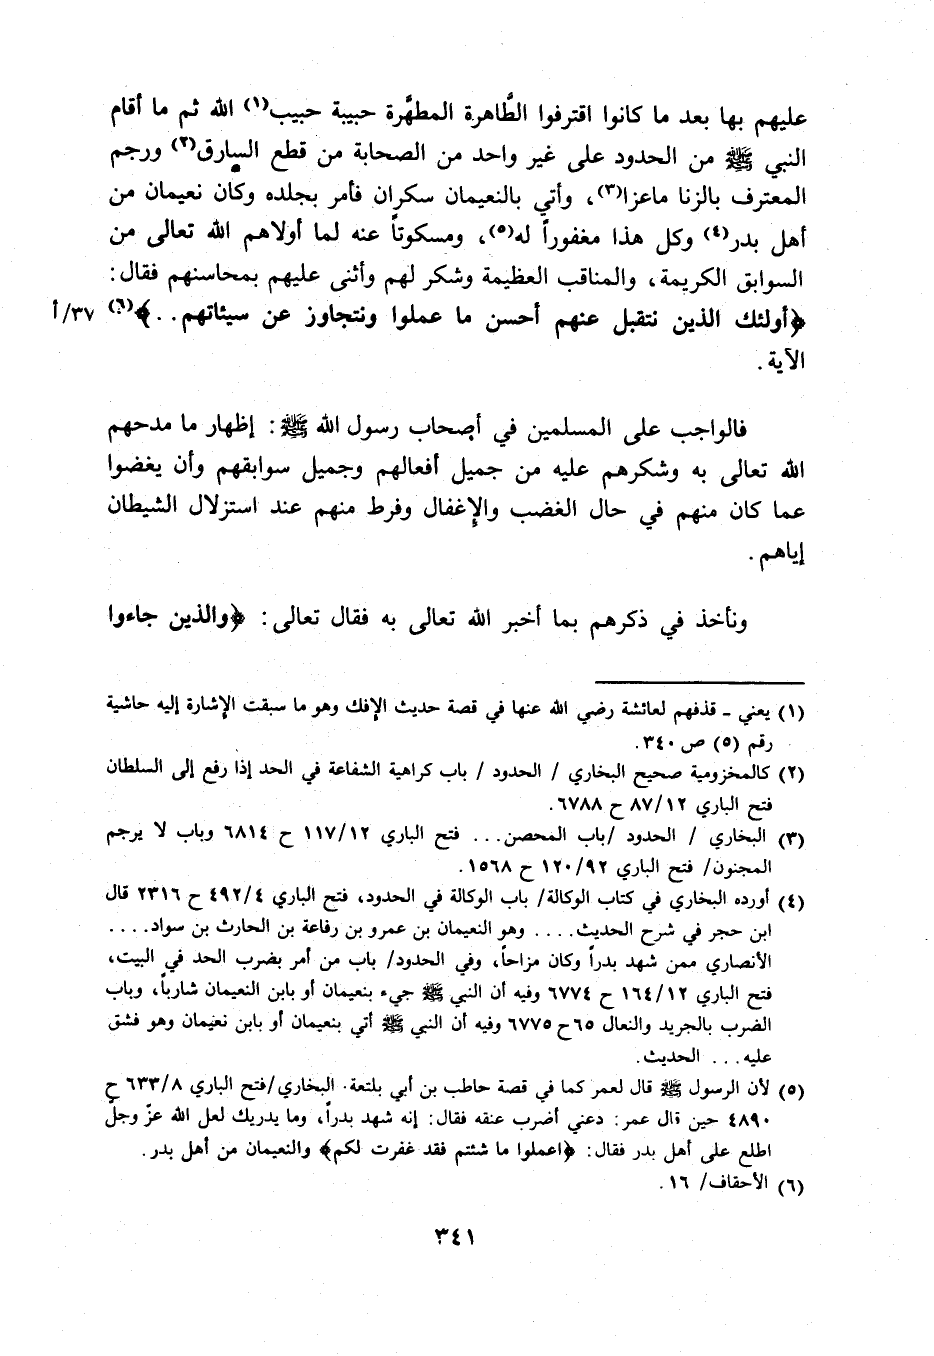 عليهم بها بعد ما كانوا اقترفوا الطَّاهرة المطهَّرة حبيبة حبيب(١) الله ثم ما أقام
النبي ﷺ من الحدود على غير واحد من الصحابة من قطع السارق(٢) ورجم
المعترف بالزنا ماعزا(٣)، وأتي بالنعيمان سكران فأمر بجلده وكان نعيمان من
أهل بدر(٤) وكل هذا مغفوراً له(٥)، ومسكوتاً عنه لما أولاهم الله تعالى من
السوابق الكريمة، والمناقب العظيمة وشكر لهم وأثنى عليهم بمحاسنهم فقال:
﴿أولئك الذين نتقبل عنهم أحسن ما عملوا ونتجاوز عن سيئاتهم..﴾(٦) ٣٧/أ
الآية.
فالواجب على المسلمين في أصحاب رسول الله ﷺ: إظهار ما مدحهم
الله تعالى به وشكرهم عليه من جميل أفعالهم وجميل سوابقهم وأن يغضوا
عما كان منهم في حال الغضب والإغفال وفرط منهم عند استزلال الشيطان
إياهم.
ونأخذ في ذكرهم بما أخبر الله تعالى به فقال تعالى: ﴿والذين جاءوا
(١) يعني - قذفهم لعائشة رضي الله عنها في قصة حديث الإفك وهو ما سبقت الإشارة إليه حاشية
رقم (٥) ص ٣٤٠.
(٢) كالمخزومية صحيح البخاري / الحدود / باب كراهية الشفاعة في الحد إذا رفع إلى السلطان
فتح الباري ٨٧/١٢ ح ٦٧٨٨.
(٣) البخاري / الحدود /باب المحصن... فتح الباري ١١٧/١٢ ح ٦٨١٤ وباب لا يرجم
المجنون/ فتح الباري ١٢٠/٩٢ ح ١٥٦٨.
(٤) أورده البخاري في كتاب الوكالة/ باب الوكالة في الحدود، فتح الباري ٤٩٢/٤ ح ٢٣١٦ قال
ابن حجر في شرح الحديث.... وهو النعيمان بن عمرو بن رفاعة بن الحارث بن سواد....
الأنصاري ممن شهد بدراً وكان مزاحاً، وفي الحدود/ باب من أمر بضرب الحد في البيت،
فتح الباري ١٦٤/١٢ ح ٦٧٧٤ وفيه أن النبي ﷺ جيء بنعيمان أو بابن النعيمان شارباً، وباب
الضرب بالجريد والنعال ٦٥ح ٦٧٧٥ وفيه أن النبي ﷺ أتي بنعيمان أو بابن نعيمان وهو فشق
عليه... الحديث.
(٥) لأن الرسول ﷺ قال لعمر كما في قصة حاطب بن أبي بلتعة. البخاري/فتح الباري ٦٣٣/٨ ح
٤٨٩٠ حين قال عمر: دعني أضرب عنقه فقال: إنه شهد بدراً، وما يدريك لعل الله عزّ وجلّ
اطلع على أهل بدر فقال: ﴿اعملوا ما شئتم فقد غفرت لكم﴾ والنعيمان من أهل بدر.
(٦) الأحقاف/ ١٦.
٣٤١